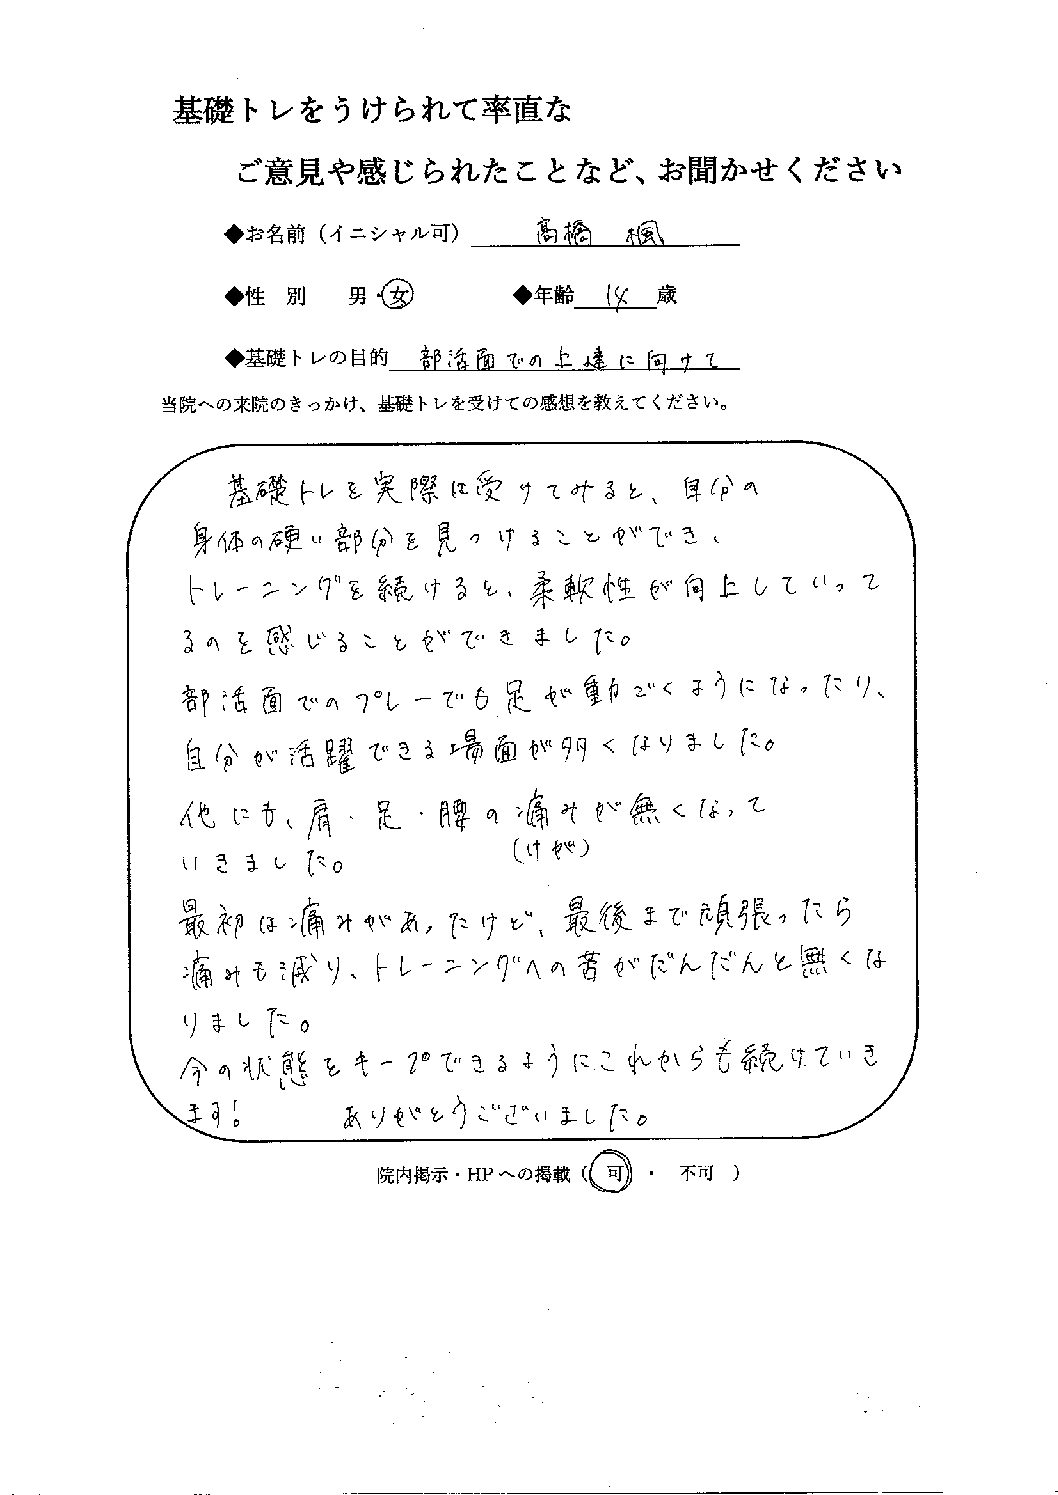 基礎トレをうけられて率直な
ご意見や感じられたことなど、お聞かせください
◆お名前（イニシャル可） 髙橋 楓
◆性 別 男・女 ◆年齢 14 歳
◆基礎トレの目的 部活面での上達に向けて
当院への来院のきっかけ、基礎トレを受けての感想を教えてください。
基礎トレを実際に受けてみると、自分の
身体の硬い部分を見つけることができ、
トレーニングを続けると、柔軟性が向上していって
るのを感じることができました。
部活面でのプレーでも足が動ごくようになったり、
自分が活躍できる場面が多くなりました。
他にも、肩・足・腰の痛みが無くなって
(けが)
いきました。
最初は痛みがあったけど、最後まで頑張ったら
痛みも減り、トレーニングへの苦がだんだんと無くな
りました。
今の状態をキープできるようにこれからも続けていき
ます! ありがとうございました。
院内掲示・HPへの掲載（ 可 ・ 不可 ）